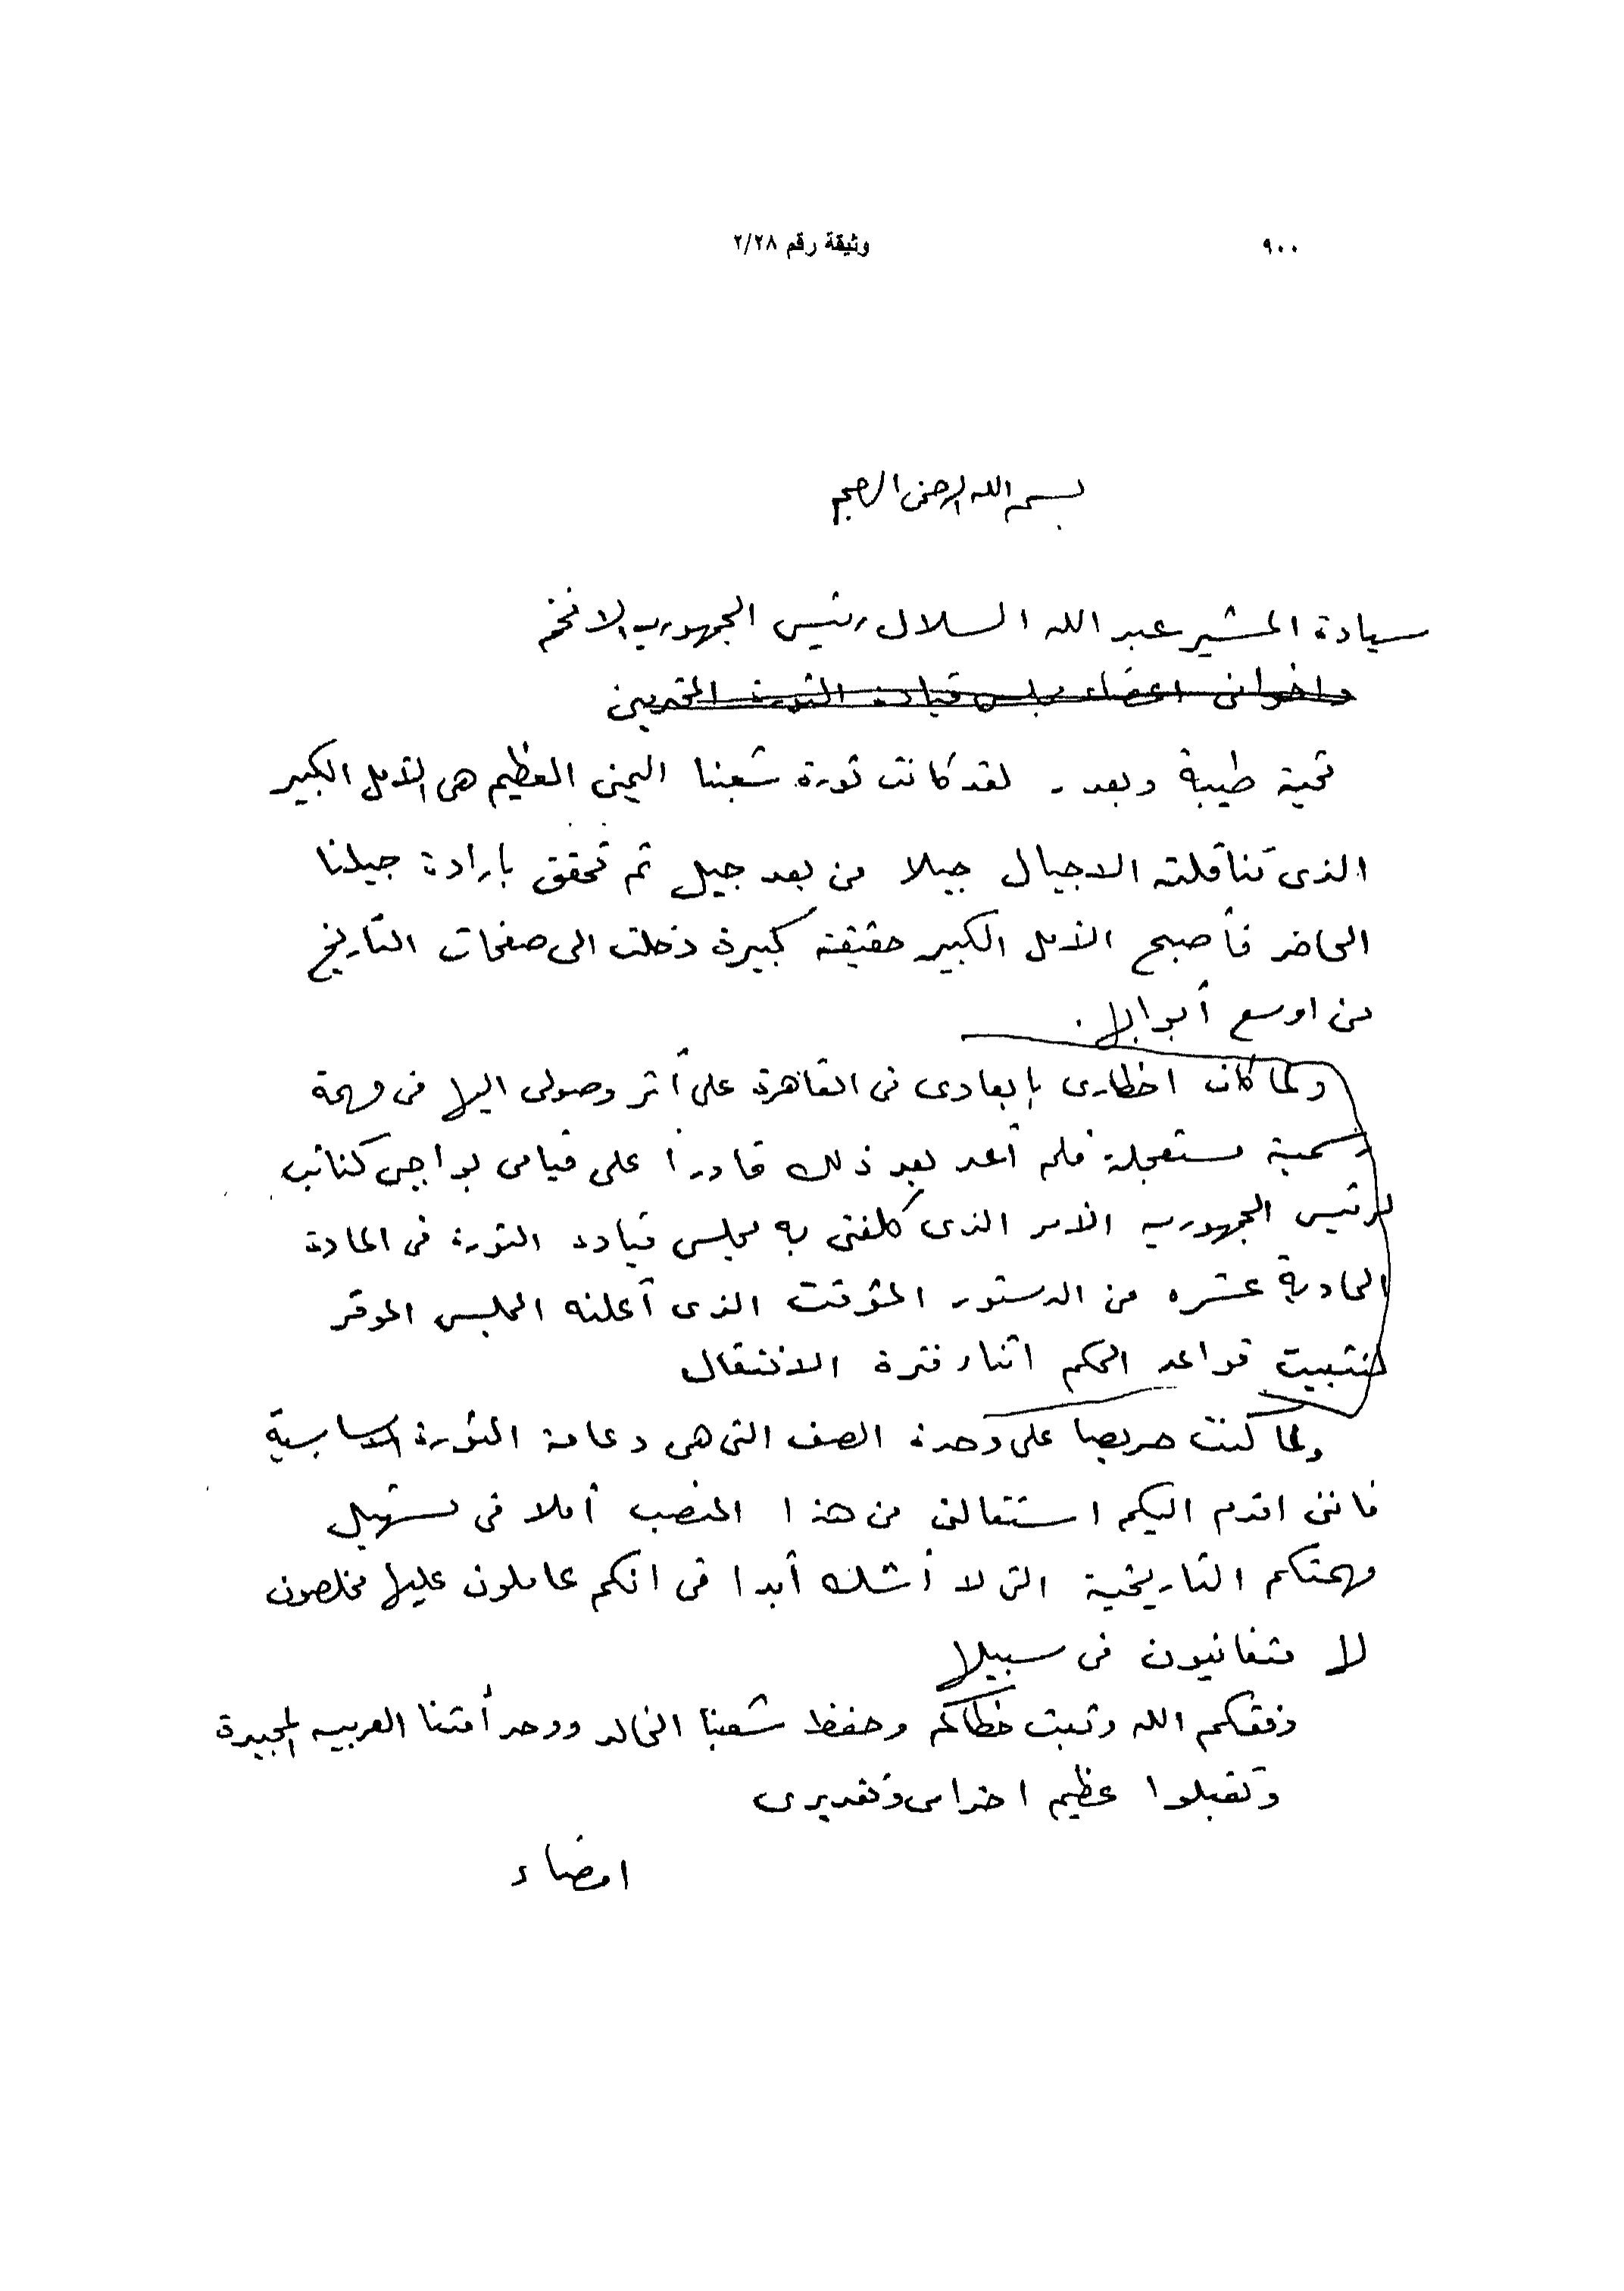 ٩٠٠
وثيقة رقم ٢/٢٨
بسم الله الرحمن الرحيم
سيادة المشير عبد الله السلال رئيس الجمهورية الافخم
واخوانى اعضاء مجلس قيادة الثورة المحترمين
تحية طيبة وبعد . لقد كانت ثورة شعبنا اليمنى العظيم هى الأمل الكبير
الذى تناقلته الاجيال جيلا من بعد جيل ثم تحقق بارادة جيلنا
الحاضر فأصبح الأمل الكبير حقيقة كبيرة دخلت الى صفحات التاريخ
من اوسع أبوابها .
ولما كان اخطارى بإبعادى فى القاهرة على أثر وصولى اليها فى مهمة
رسمية مستعجلة فلم أعد بعد ذلك قادرا على قيامى بواجبى كنائب
لرئيس الجمهورية الأمر الذى كلفنى به مجلس قيادة الثورة فى المادة
الحادية عشره من الدستور المؤقت الذى أعلنه المجلس الموقر
لتثبيت قواعد الحكم اثناء فترة الانتقال
ولما كنت حريصا على وحدة الصف التى هى دعامة الثورة الاساسية
فاننى اقدم اليكم استقالتى من هذا المنصب أملا فى تسهيل
مهمتكم التاريخية التى لا أشك أبدا فى انكم عاملون عليها مخلصون
لها متفانيون فى سبيلها
وفقكم الله وثبت خطاكم وحفظ شعبنا الخالد ووحد أمتنا العربيه المجيدة
وتقبلوا عظيم احترامى وتقديرى
امضاء